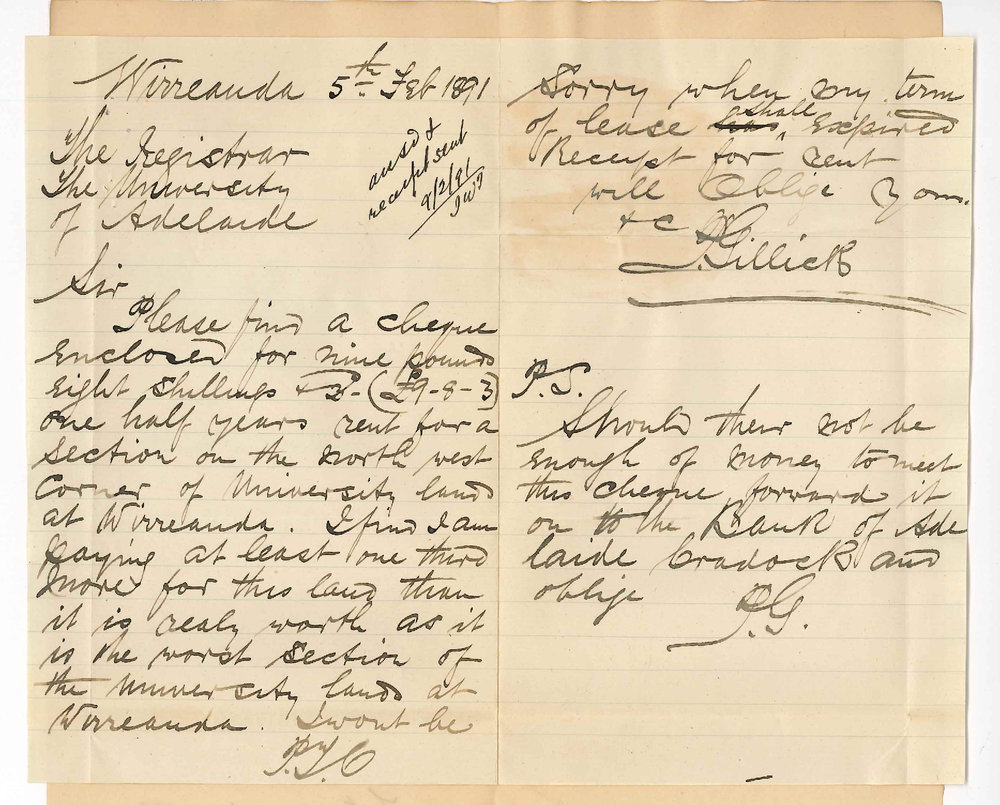 Wirreanda 5th Feb 1891
The Registrar
The University
of Adelaide
ansd &
receipt sent
9/2/91
Sir
Please find a cheque
enclosed for nine pounds
eight shillings & 3d- (£9-8-3)
one half years rent for a
section on the north west
corner of University lands
at Wirreanda. I find I am
paying at least one third
more for this land than
it is realy worth as it
is the worst section of
the University lands at
Wirreanda. I wont be
P.T.O
Sorry when my term
of lease has shall expired
Receipt for rent
will oblige yours.
& c
P. Gillick
P.S.
Should their not be
enough of money to meet
this cheque forward it
on to the Bank of Ade
laide Cradock and
oblige
P.G.